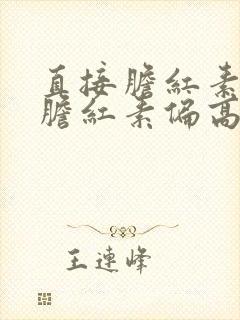 直接膽紅素
膽紅素偏高
王連峰